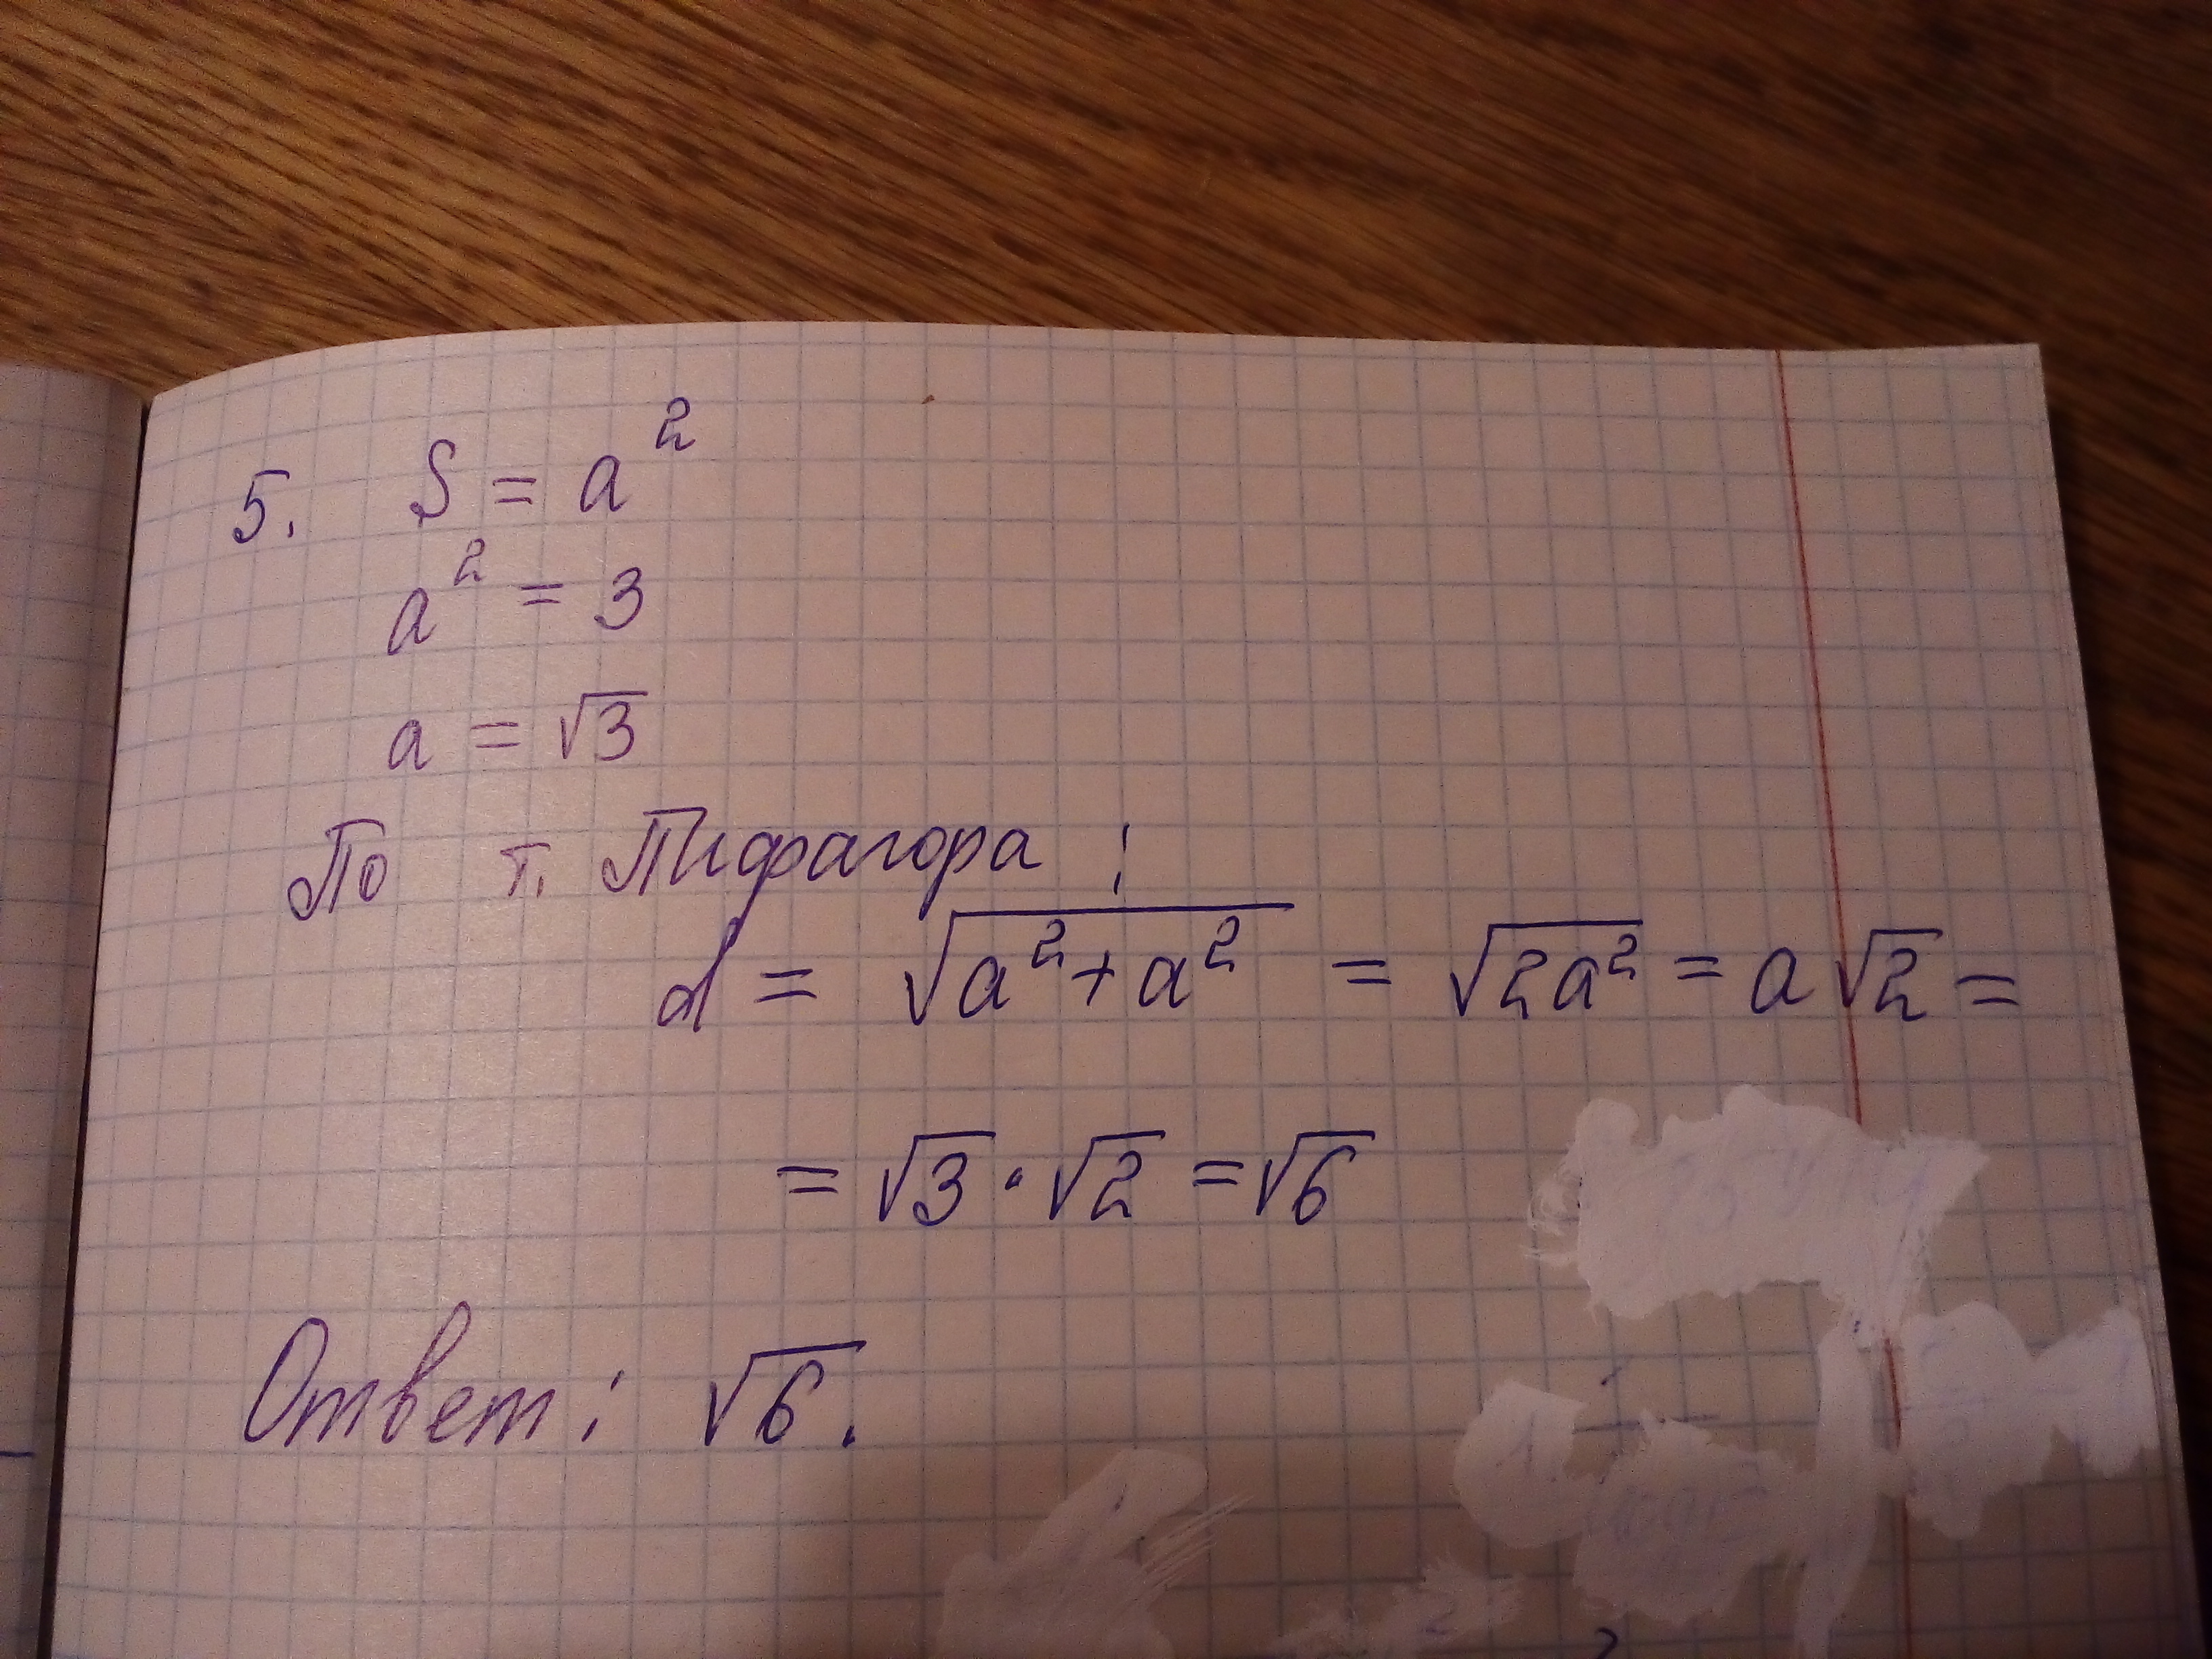 5. S = a²
a² = 3
a = √3
По т. Пифагора :
d = √(a²+a²) = √(2a²) = a√2 =
= √3 · √2 = √6
Ответ: √6.